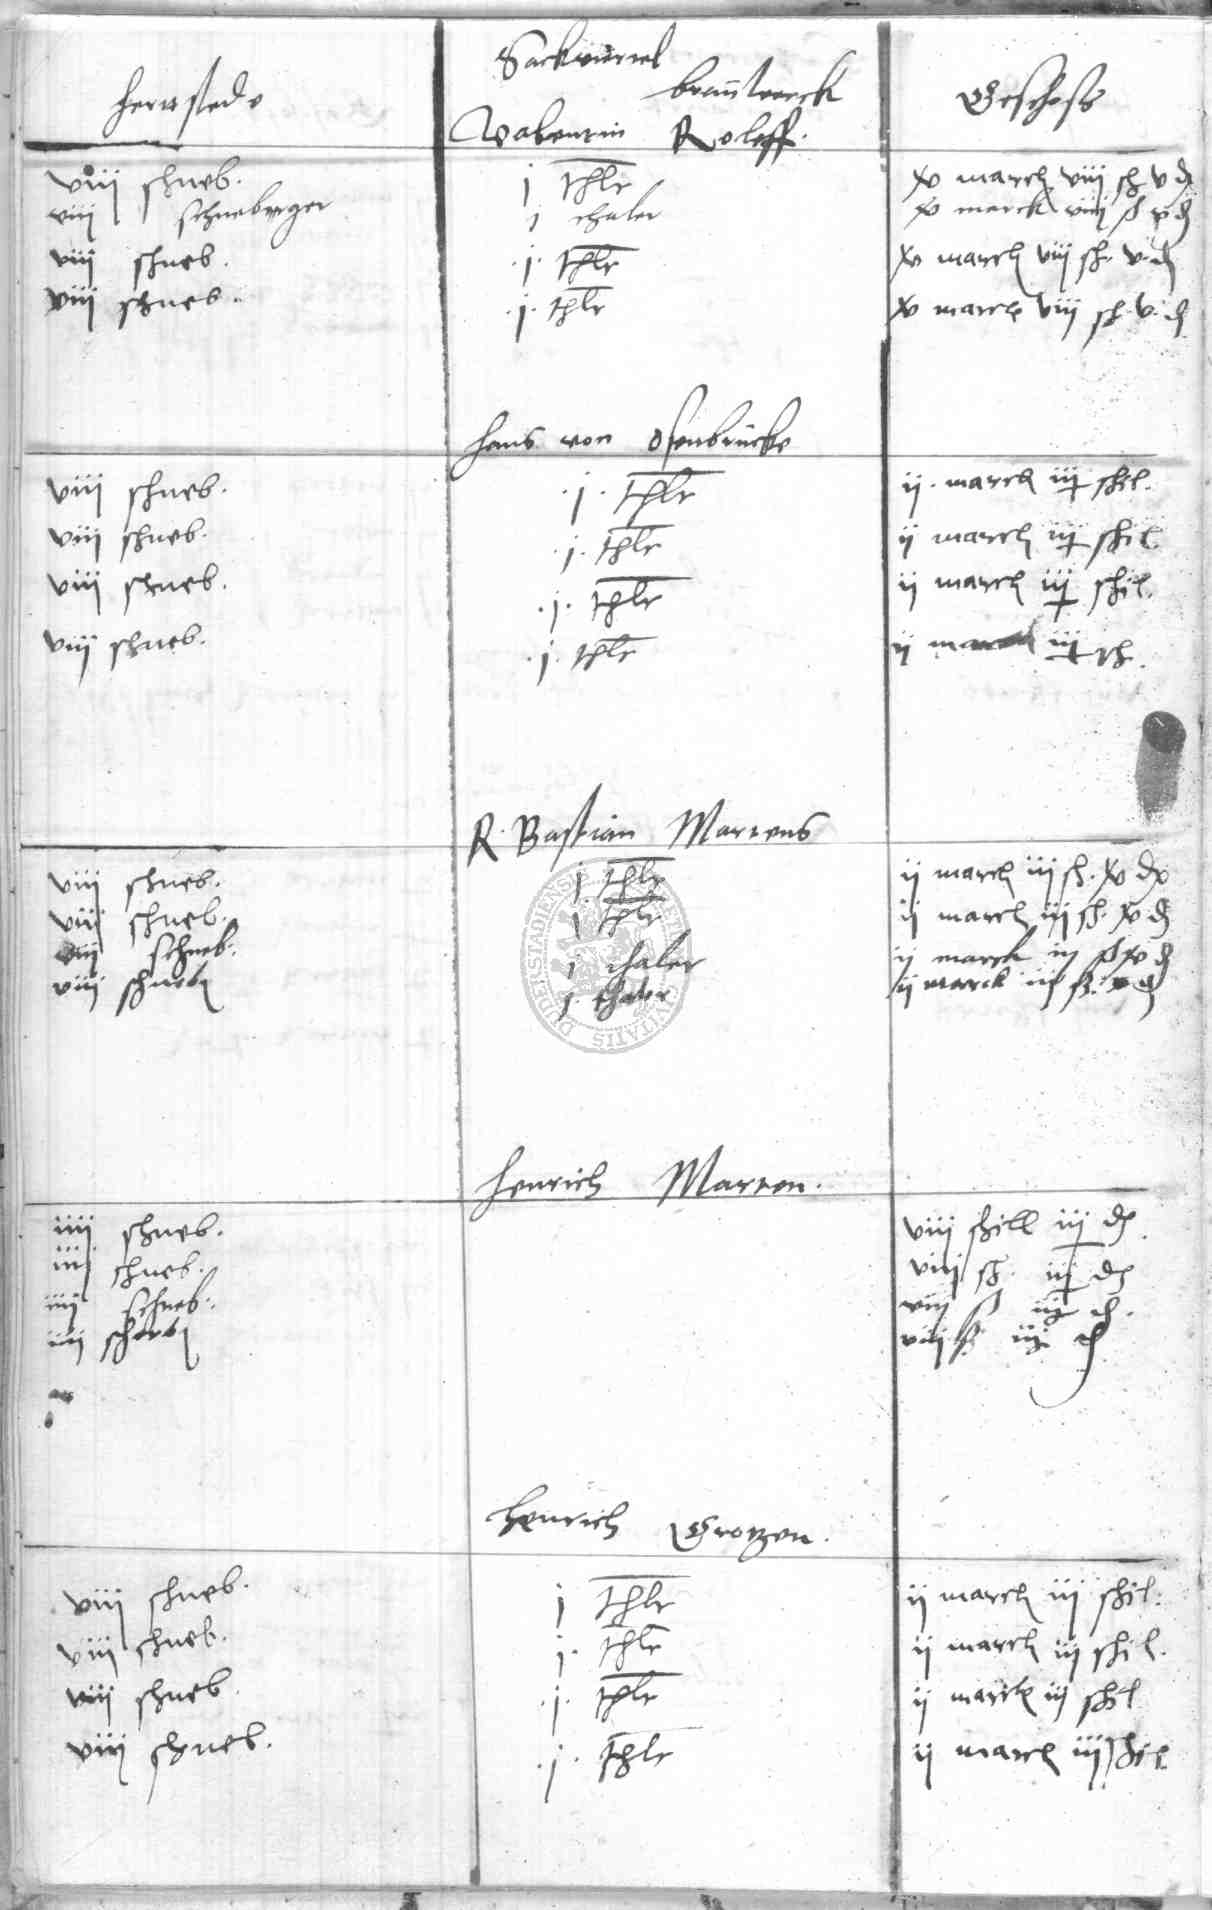 Sackviertel
herrstedt brauwerck Geschoss
Valentin Roleff.
viij schneb. j thlr xv marck viij sch v d
viij schneberger j thaler xv marck viij ß v d
viij schneb. j thlr xv marck viij sch. v d
viij schneb. j thlr xv marck viij sch. v d
Hans von Osenbrücke
viij schneb. j thlr ij marck iij schil.
viij schneb. j thlr ij marck iij schil.
viij schneb. j thlr ij marck iij schil.
viij schneb. j thlr ij marck iij sch.
R. Bastian Martens
viij schneb. j thlr ij marck iij sch. xv d
viij schneb. j thlr ij marck iij sch. xv d
viij schneb. j thaler ij marck iij ß xv d
viij schneb j thaler ij marck iij ß d
DUDERSTADIENSE CIVITATIS
Henrich Marten.
iiij schneb. viij schill iij d
iiij schneb. viij sch. iij d
iiij schneb. viij ß iij d.
iiij schneb viij ß iij d
Henrich Grotzen.
viij schneb. j thlr ij marck iij schil.
viij schneb. j thlr ij marck iij schil.
viij schneb. j thlr ij marck iij schil
viij schneb. j thlr ij marck iij schil.